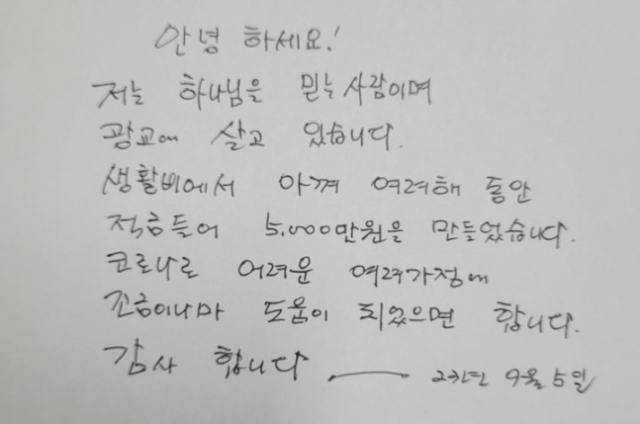 안녕 하세요!
저는 하나님을 믿는 사람이며
광교에 살고 있습니다.
생활비에서 아껴 여러해 동안
적금들어 5.000만원을 만들었습니다.
코로나로 어려운 여러가정에
조금이나마 도움이 되었으면 합니다.
감사 합니다 — 23년 9월 5일